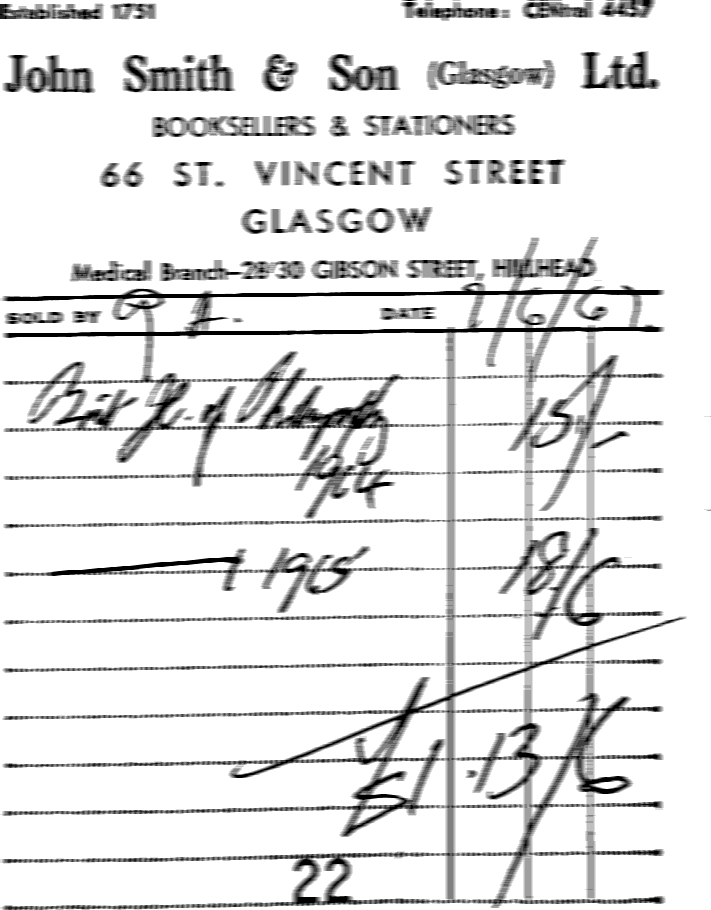 Established 1751 Telephone: CENtral 4457
John Smith & Son (Glasgow) Ltd.
BOOKSELLERS & STATIONERS
66 ST. VINCENT STREET
GLASGOW
Medical Branch—28'30 GIBSON STREET, HILLHEAD
SOLD BY DATE 9/6/67
Brit Jl. of Photography 15/-
1964
1965 18/6
£1.13/6
22